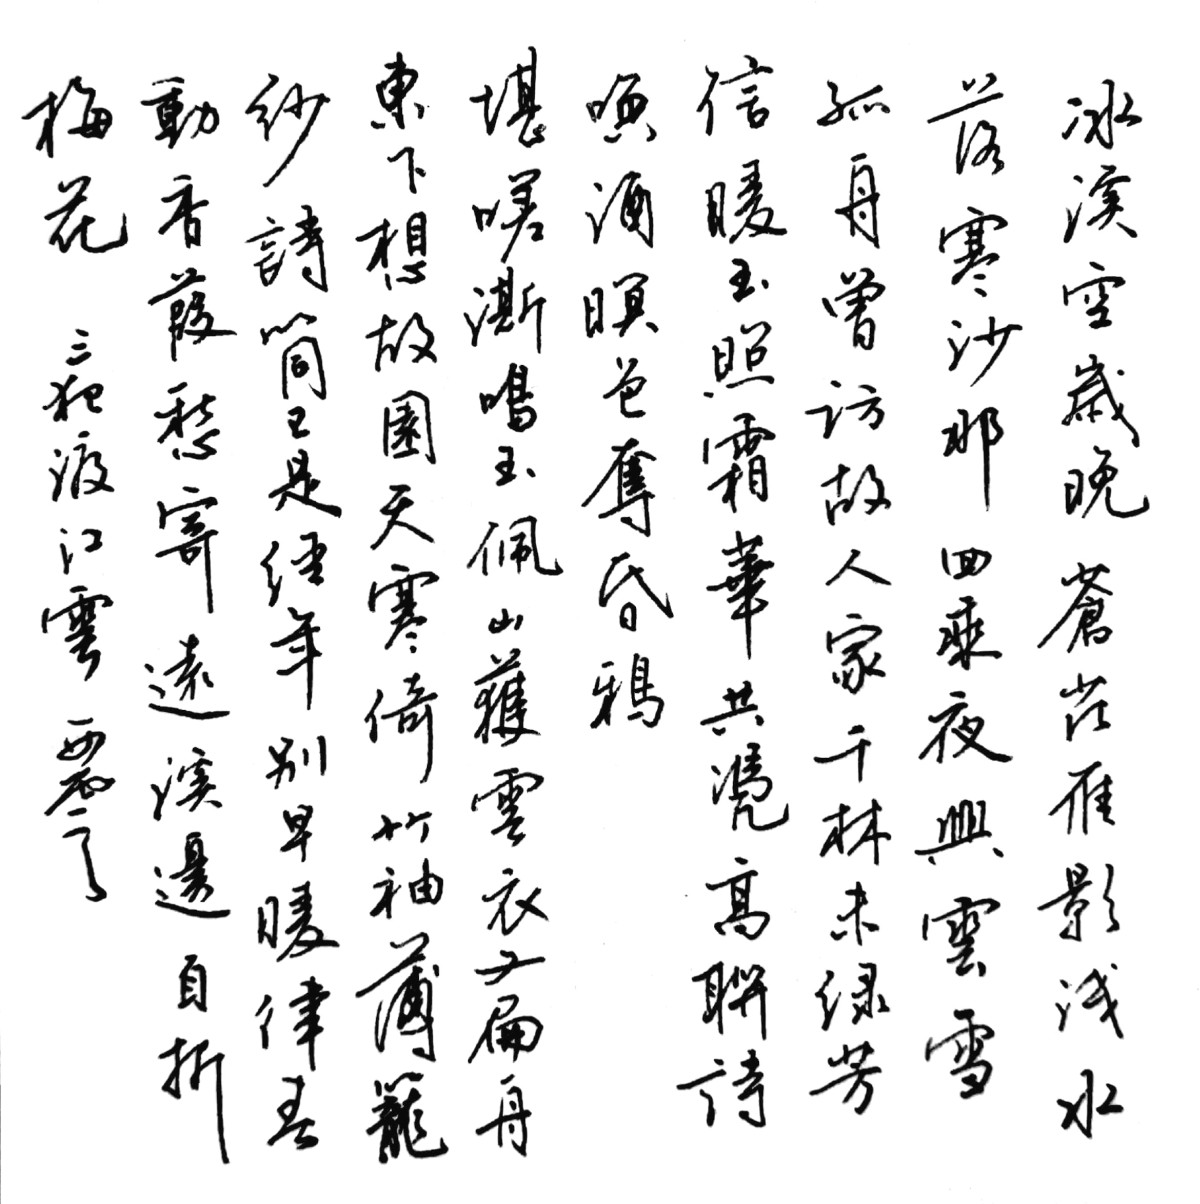 冰溪空歲晚蒼茫雁影淺水
落寒沙那回乘夜興雲雪
孤舟曾訪故人家千林未绿芳
信暖玉照霜華共凴高聯詩
喚酒暝色奪昏鴉
堪嗟澌鳴玉佩山獲雲衣又扁舟
東下想故園天寒倚竹袖薄籠
紗詩筒已是经年别早暖律春
動香葭愁寄遠溪邊自折
梅花 三犯渡江雲